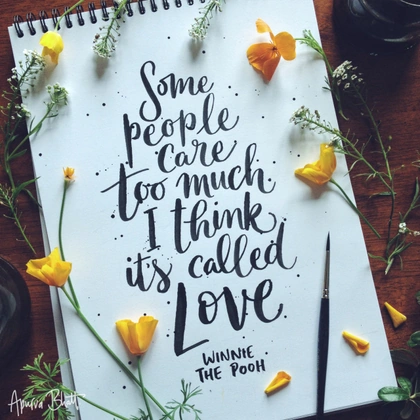 Some
people
care
too much.
I think
it's called
Love
WINNIE
THE POOH